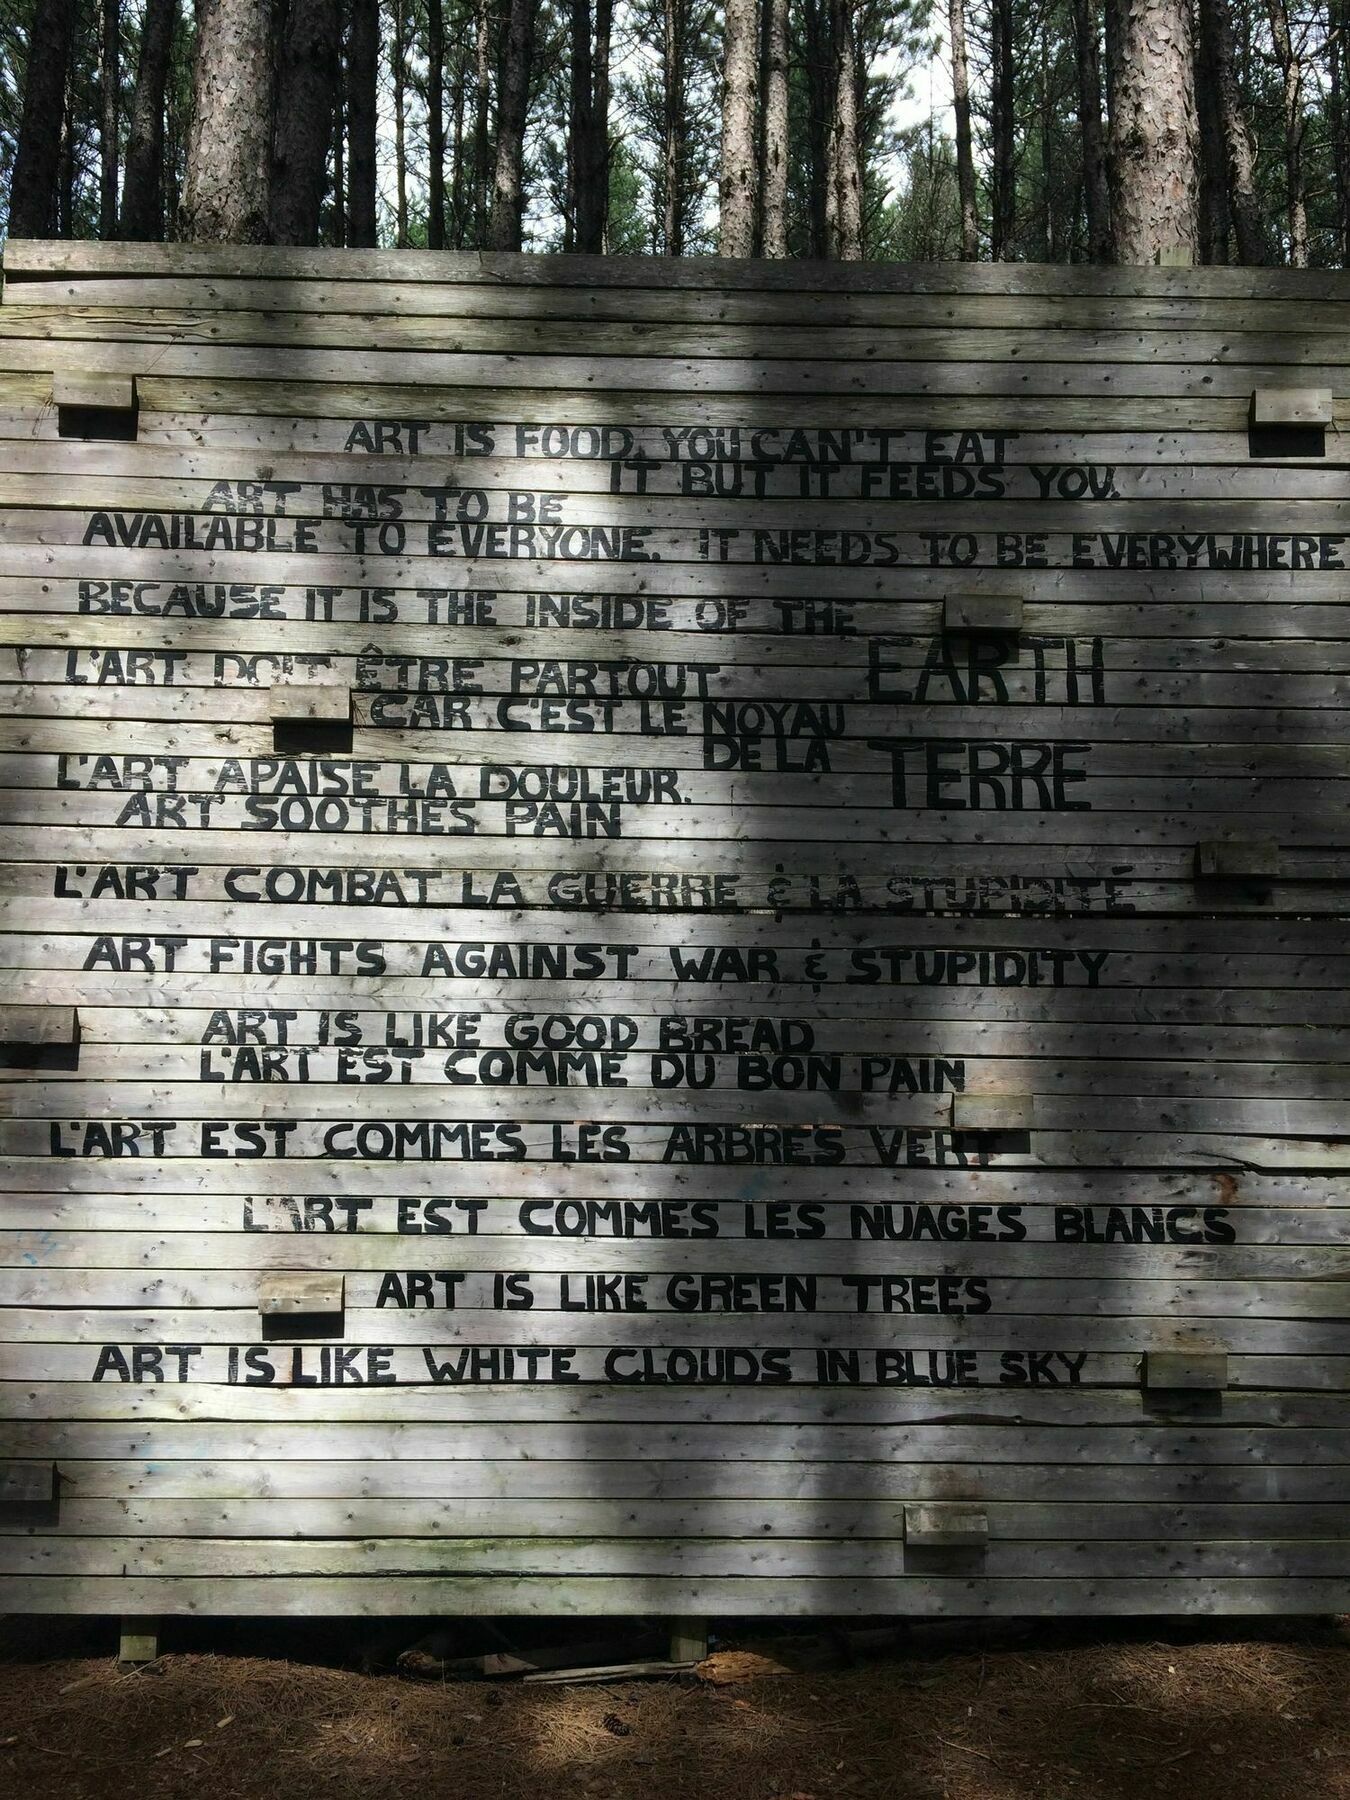 ART IS FOOD. YOU CAN'T EAT
IT BUT IT FEEDS YOU.
ART HAS TO BE
AVAILABLE TO EVERYONE. IT NEEDS TO BE EVERYWHERE
BECAUSE IT IS THE INSIDE OF THE
EARTH
L'ART DOIT ÊTRE PARTOUT
CAR C'EST LE NOYAU
DE LA TERRE
L'ART APAISE LA DOULEUR.
ART SOOTHES PAIN
L'ART COMBAT LA GUERRE & LA STUPIDITÉ
ART FIGHTS AGAINST WAR & STUPIDITY
ART IS LIKE GOOD BREAD
L'ART EST COMME DU BON PAIN
L'ART EST COMMES LES ARBRES VERT
L'ART EST COMMES LES NUAGES BLANCS
ART IS LIKE GREEN TREES
ART IS LIKE WHITE CLOUDS IN BLUE SKY